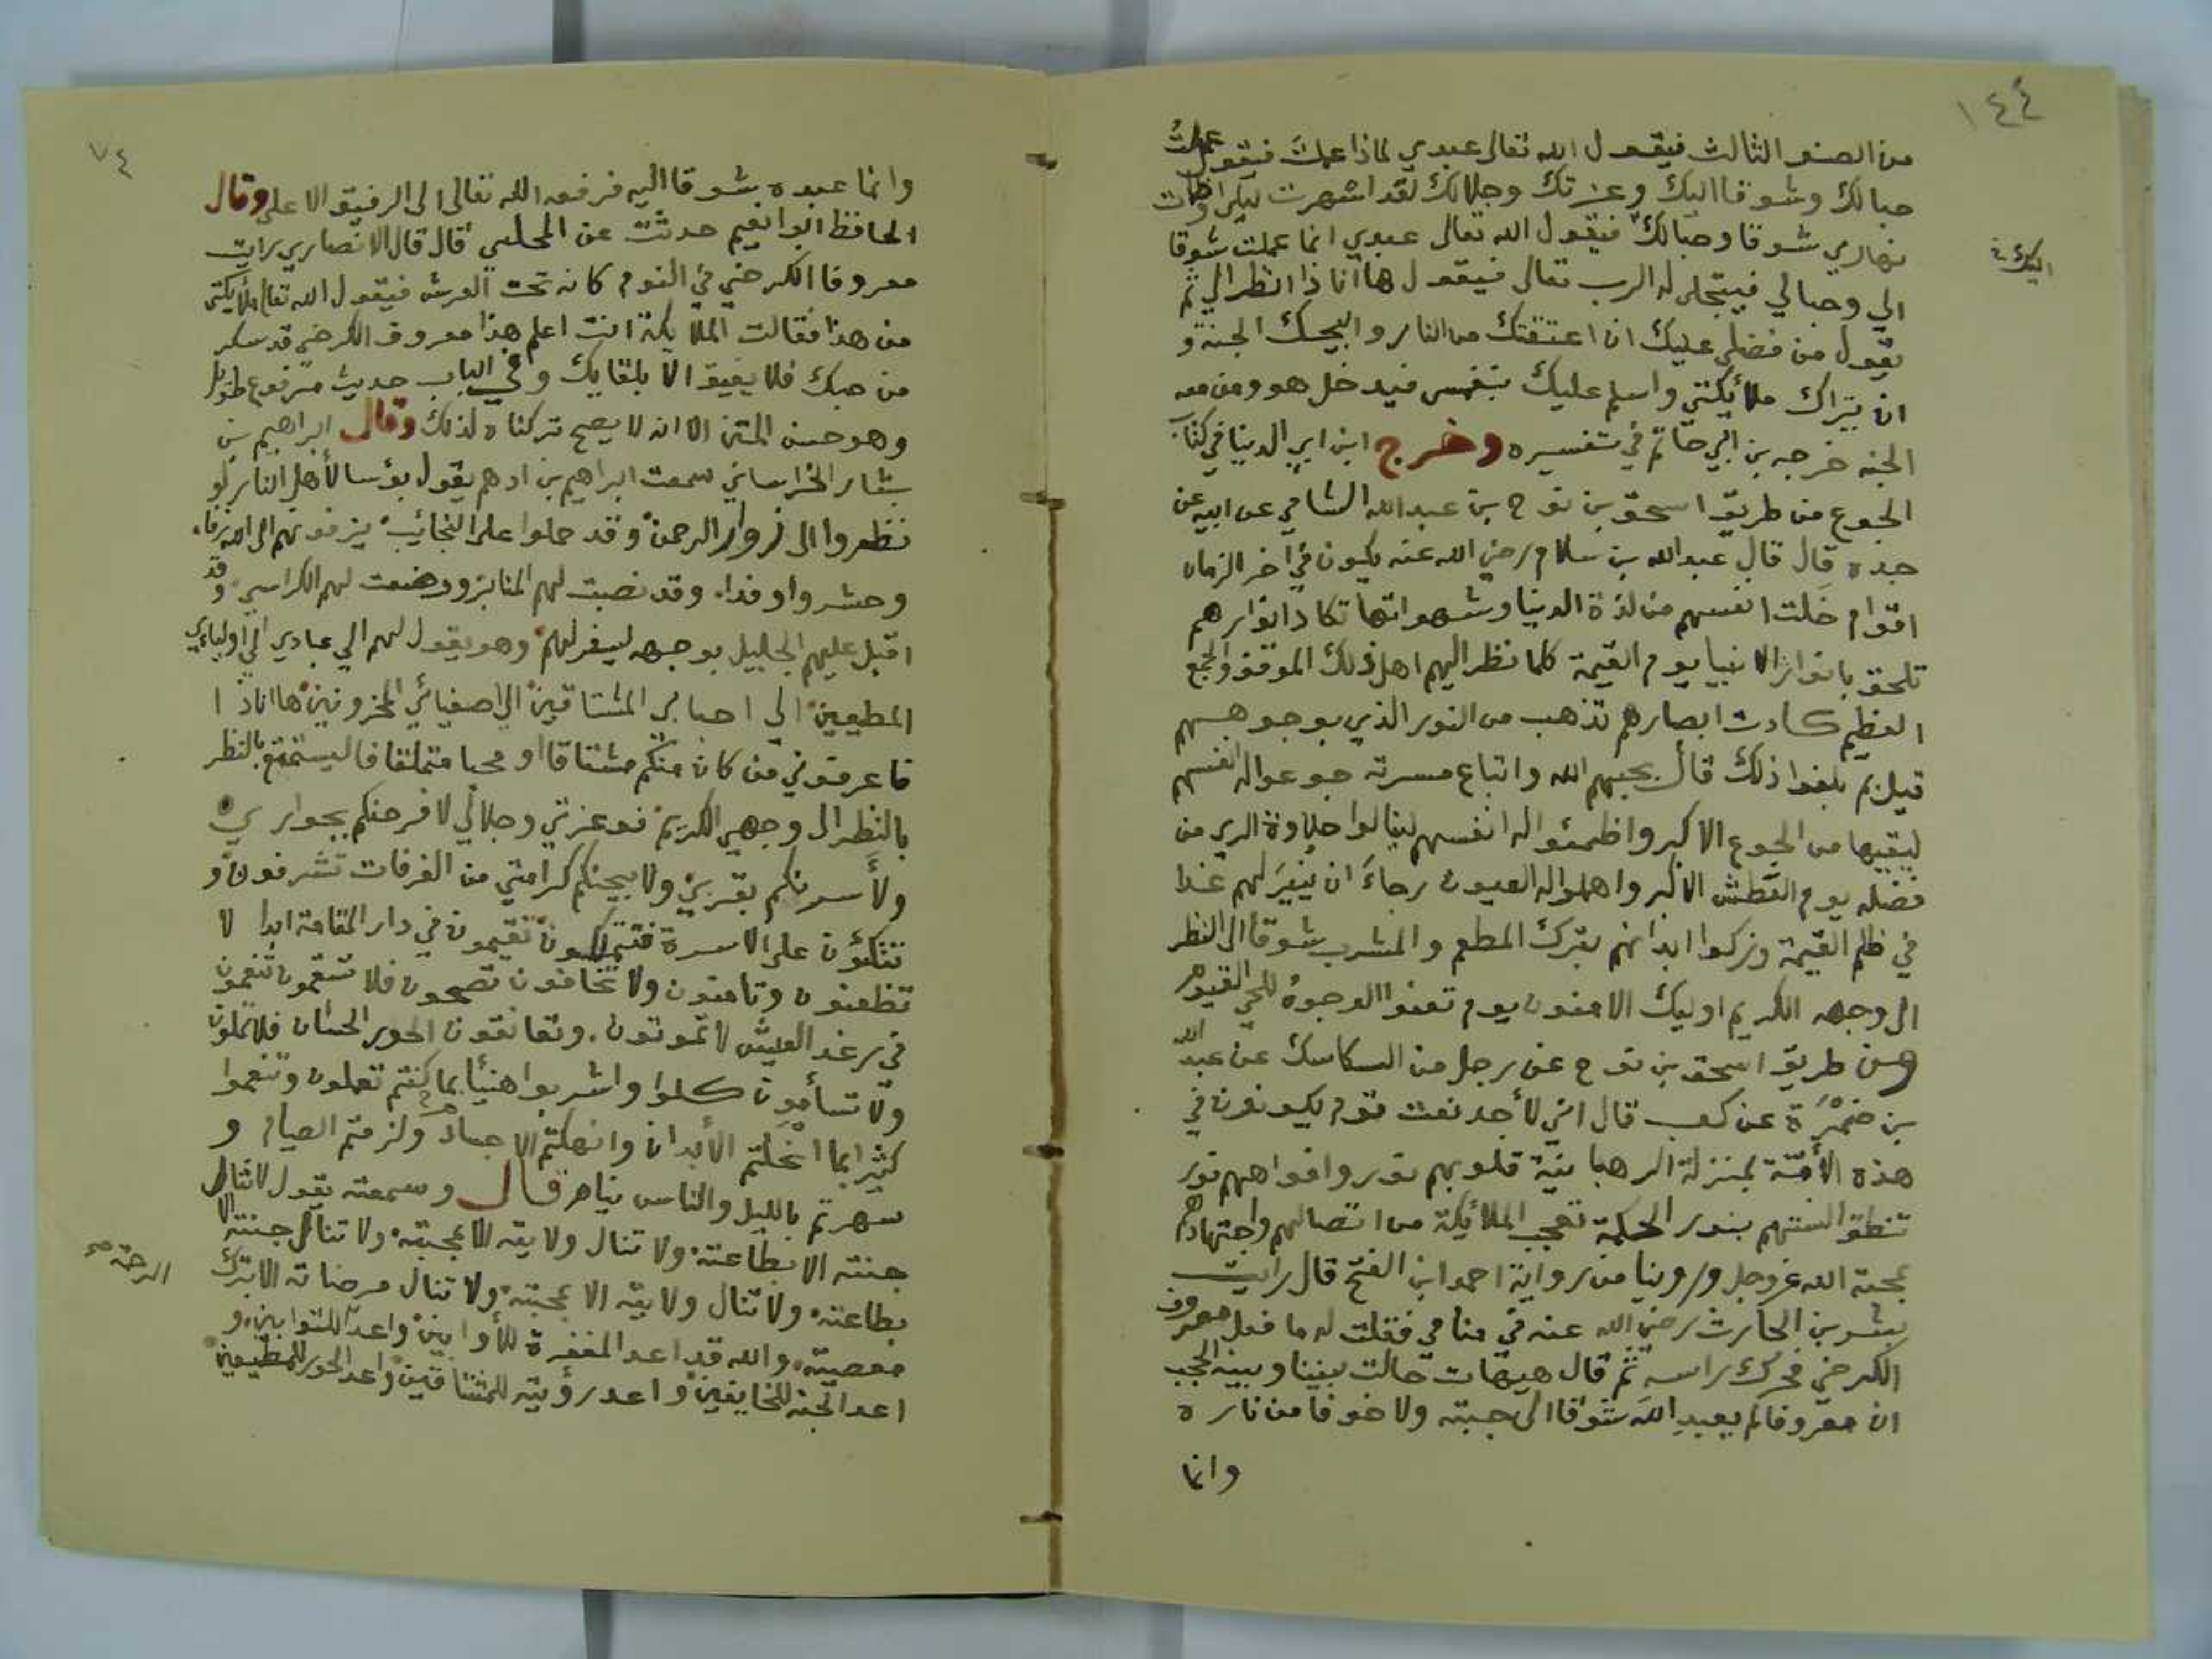 ١٤٤
من الصنف الثالث فيقول الله تعالى عبدي لماذا عملت فيقول عملت
حبا لك وشوقا اليك وعزتك وجلالك لقد اسهرت ليلي واظمات
نهاري شوقا وحبا لك فيقول الله تعالى عبدي انما عملت شوقا
اليك
الي وحبا لي فيتجلى له الرب تعالى فيقول ها انا ذا انظر الي ثم
يقول من فضلي عليك ان اعتقتك من النار وابيحك الجنة و
ان يزاك ملائكتي واسلم عليك بنفسي فيدخل هو ومن معه
الجنه خرجه بن ابي حاتم في تفسيره وخرج ابن ابي الدنيا في كتاب
الجوع من طريق اسحق بن نوح بن عبد الله الشامي عن ابيه عن
جده قال قال عبد الله بن سلام رضي الله عنه يكون في اخر الزمان
اقوام خلت انفسهم من لذة الدنيا وشهواتها تكاد انوارهم
تلحق بانوار الانبيا يوم القيمة كلما نظر اليهم اهل ذلك الموقف والجمع
العظيم كادت ابصارهم تذهب من النور الذي بوجوههم
قيل بم بلغوا ذلك قال بحبهم الله واتباع مسرته جوعوا له انفسهم
ليقيها من الجوع الاكبر واظمئوا له انفسهم لينالوا حلاوة الري من
فضله يوم العطش الاكبر واهملوا له العيون رجاء ان ينير لهم غدا
في ظلم القيمة وتركوا ابدانهم بترك المطعم والمشرب شوقا الى النظر
الى وجهه الكريم اوليك الامنون يوم تعنوا الوجوه للحي القيوم
ومن طريق اسحق بن نوح عن رجل من السكاسك عن عبد الله
بن ضمرة عن كعب قال اني لأجد نعت قوم يكونون في
هذه الأمة بمنزلة الرهبانية قلوبهم نور وافواههم نور
تنطق السنتهم بنور الحكمة تعجب الملائكة من اتصالهم واجتهادهم
بمحبة الله عز وجل وروينا من رواية احمد ابن الفتح قال رايت
بشر بن الحارث رضي الله عنه في منامي فقلت له ما فعل معروف
الكرخي فحرك راسه ثم قال هيهات حالت بيننا وبينه الحجب
ان معروفا لم يعبد الله شوقا الى جنته ولا خوفا من ناره
وانما
٧٤
وانما عبده شوقا اليه فرفعه الله تعالى الى الرفيق الاعلى وقال
الحافظ ابوا نعيم حدثت عن المجلسي قال قال الانصاري رايت
معروفا الكرخي في النوم كانه تحت العرش فيقول الله تعالى ملائكتي
من هذا فقالت الملايكة انت اعلم هذا معروف الكرخي قد سكر
من حبك فلا يفيق الا بلقايك وفي الباب حديث مرفوع طويل
وهو حسن المتن الا انه لا يصح تركناه لذلك وقال ابراهيم بن
بشار الخراساني سمعت ابراهيم بن ادهم يقول بؤسا لأهل النار لو
نظروا الى زوار الرحمن وقد حملوا على النجائب يزفونهم الى الله زفاء
وحشروا وفدا وقد نصبت لهم المنابر ووضعت لهم الكراسي وقد
اقبل عليهم الجليل بوجهه ليسفر لهم وهو يقول لهم الي عبادي الي اوليائي
المطيعين الي احبابي المشتاقين الي اصفيائي المحزونين ها انا ذا
فاعرفوني من كان منكم مشتاقا او محبا متملقا فاليستمتع بالنظر
بالنظر الى وجهي الكريم فوعزتي وجلالي لافرحنكم بجواري
ولأسرنكم بقربي ولابيحنكم كرامتي من الغرفات تشرفون و
تتكئون على الاسرة فتتملكون تقيمون في دار المقامة ابدا لا
تظعنون وتامنون ولا تخافون تصحون فلا تسقمون تنعمون
في رغد العيش لا تموتون وتعانقون الحور الحسان فلا تملون
ولا تسأمون كلوا واشربوا هنيئا بما كنتم تعملون وتنعموا
كثيرا بما انحلتم الأبدان وانهكتم الاجساد ولزمتم الصيام و
سهرتم بالليل والناس نيام قال وسمعته يقول لا تنال
جنته الا بطاعته ولا تنال ولايته الا بمحبته ولا تنال جنته الا
بطاعته ولا تنال ولايته الا بمحبته ولا تنال مرضاته الا بترك
معصيته والله قد اعد المغفرة للأوابين واعد للتوابين و
الرحمة صح
اعد الجنه للخايفين واعد رؤيته للمشتاقين واعد الحور للمطيعين